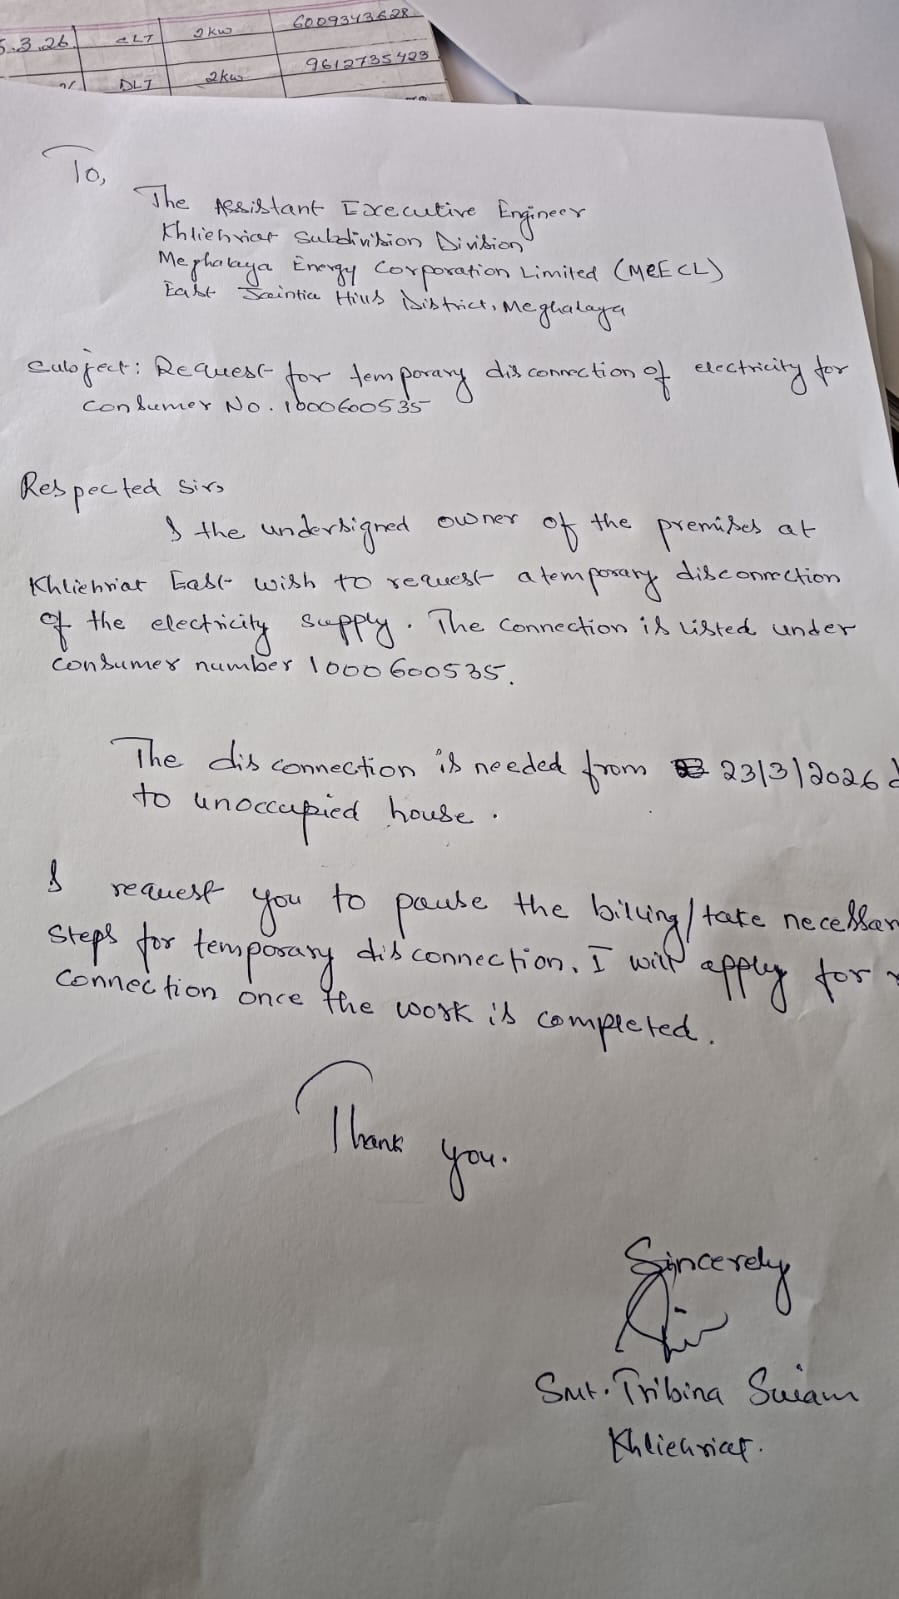 5.3.26 CLT 2kw 6009343628
DLT 2kw 9612735423
To,
The Assistant Executive Engineer
Khliehriat Subdivision Division
Meghalaya Energy Corporation Limited (MeECL)
East Jaintia Hills District, Meghalaya
Subject: Request for temporary disconnection of electricity for
Consumer No. 1000600535
Respected Sir,
I the undersigned owner of the premises at
Khliehriat East wish to request a temporary disconnection
of the electricity supply. The connection is listed under
consumer number 1000600535.
The disconnection is needed from 23/3/2026
to unoccupied house.
I request you to pause the billing/take necessar
steps for temporary disconnection. I will apply for
connection once the work is completed.
Thank you.
Sincerely
Smt. Tribina Suiam
Khliehriat.